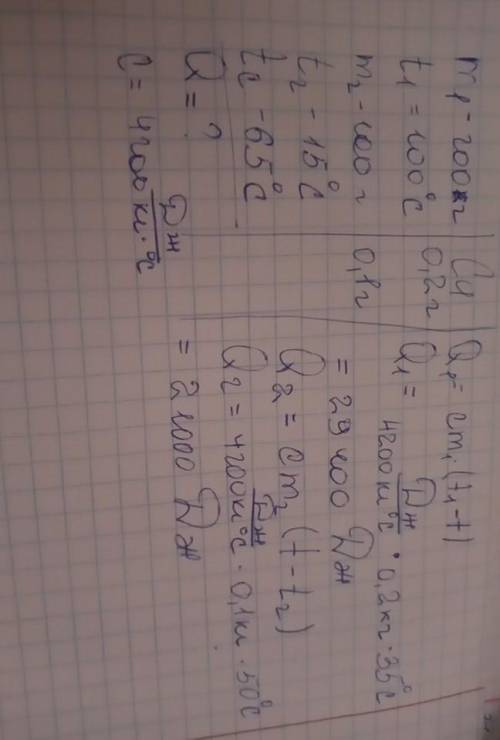 m₁ - 200 г
t₁ = 100°C
m₂ - 100 г
t₂ - 15°C
tc - 65°C
Q = ?
c = 4200 Дж/кг·°C
Си
0,2 г
0,1 г
Q₁ = cm₁(t₁-t)
Q₁ = 4200 Дж/кг°C · 0,2 кг · 35°C
= 29 400 Дж
Q₂ = cm₂(t-t₂)
Q₂ = 4200 Дж/кг°C · 0,1 кг · 50°C
= 21000 Дж